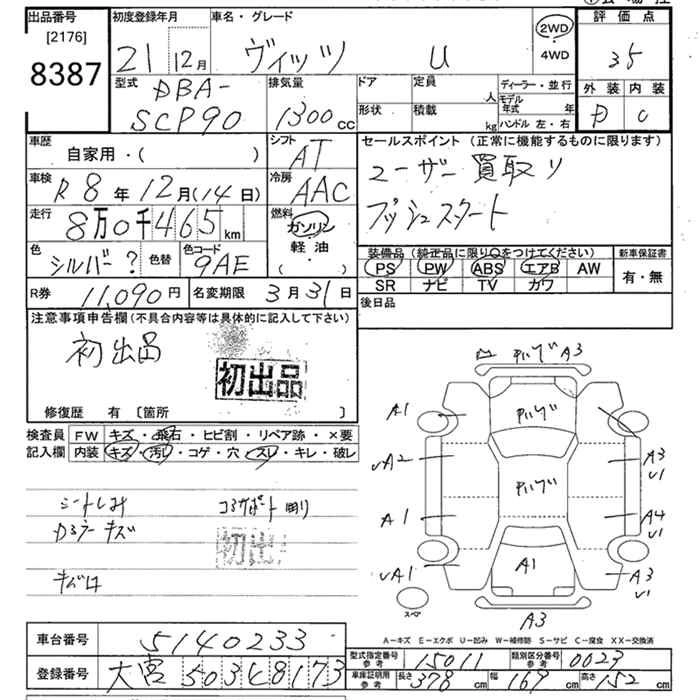 出品番号
[2176]
8387
初度登録年月
21年 12月
車名・グレード
ヴィッツ U
2WD
・
4WD
評価点
35
外装 内装
D C
型式
DBA-
SCP90
排気量
1300 CC
ドア
形状
定員 人
積載 kg
ディーラー・並行
モデル年式 年
ハンドル 左・右
車歴
自家用・( )
シフト
AT
車検
R8年12月(14日)
冷房
AAC
走行
8万0千465 km
燃料
ガソリン
軽油
・( )
色
シルバー?
色替
色コード
9AE
セールスポイント (正常に機能するものに限ります)
ユーザー買取り
プッシュスタート
装備品 (純正品に限り○をつけてください)
PS PW ABS エアB AW
SR ナビ TV カワ
新車保証書
有・無
R券 11,090円
名変期限 3月31日
後日品
注意事項申告欄(不具合内容等は具体的に記入して下さい)
初出品
初出品
修復歴 有 〔箇所 〕
検査員記入欄
FW キズ・飛石・ヒビ割・リペア跡・×要
内装 キズ・汚レ・コゲ・穴・スレ・キレ・破レ
シートしみ
コアサポート
キズ
初出
A3
A1
UA2
A1
UA1
A3
U1
A4
U1
A3
U1
A1
A3
スペア
A-キズ E-エクボ U-凹み W-補修跡 S-サビ C-腐食 XX-交換済
車台番号 5140233
登録番号 大宮 503 8173
型式指定番号 参考 15011
類別区分番号 参考 0023
車庫証明用 参考 長さ 378 cm 幅 169 cm 高さ 152 cm